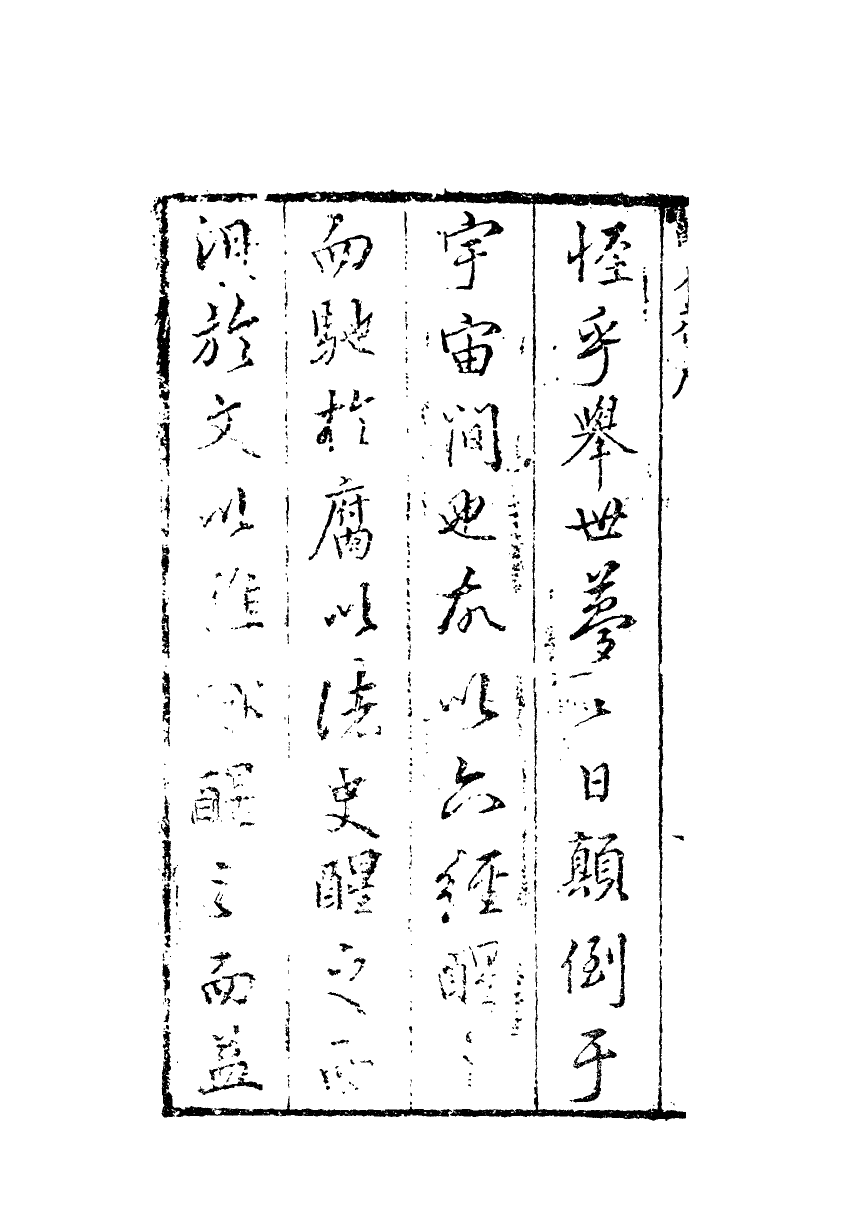 怪乎舉世夢夢日顛倒于
宇宙間也故以六經醒之
而馳於腐以諸史醒之而
溺於文以雜醒之而益